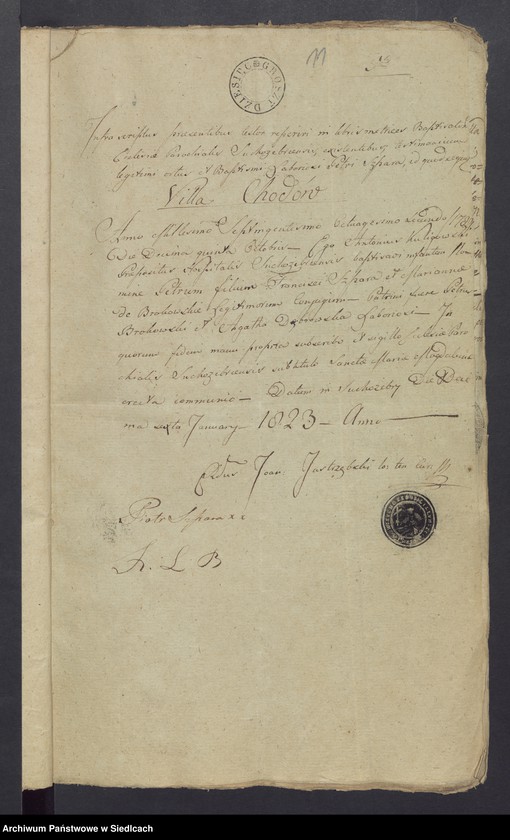 DZIESIĘC GROSZY
11
Infra scriptus praesentibus testor reperiri in libris metrices Baptisatorum
Ecclesiae Parochialis Suchozebrensis, existentibus, testimonium
legitimi ortus et Baptismi Laboriosi Petri Szpara, id quod sequitur
Villa Chodow
Anno Millesimo Septingentesimo octuagesimo secundo 1782
Die Decima quinta Octobris — Ego Antonius Kuligowski
Praepositus Hospitalis Suchozebrensis baptisavi infantem No
mine Petrum filium Francisci Szpara et Marianna
de Brokowskie Legitimorum Conjugum — Patrini fuere Petrus
Brokowski et Agatha Dąbrowska Laboriosi — In
quorum fidem manu propria subscribo et sigillo Ecclesiae Paro
chialis Suchozebrensis sub titulo Sancta Maria Magdalena
erecta communio — Datum in Suchozebry Die Deci
ma sexta January — 1823 — Anno
Joan Jastrzębski
Piotr Szpara x x
A. L B
Archiwum Państwowe w Siedlcach